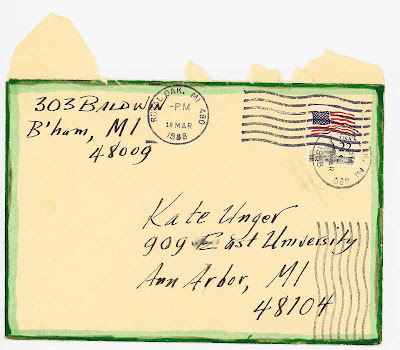 303 BALDWIN
B'ham, MI
48009
ROYAL OAK, MI 480
-PM
18 MAR
1988
USA
Kate Unger
909 East University
Ann Arbor, MI
48104